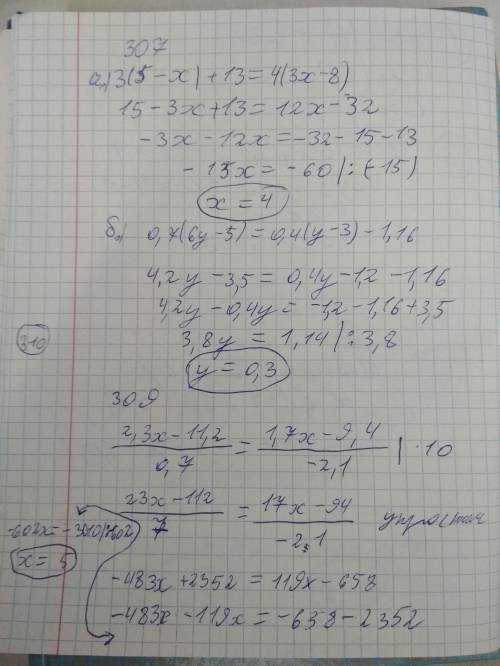 307
а) 3(5-x)+13=4(3x-8)
15-3x+13=12x-32
-3x-12x=-32-15-13
-15x=-60 |:(-15)
x=4
б) 0,7(6y-5)=0,4(y-3)-1,16
4,2y-3,5=0,4y-1,2-1,16
4,2y-0,4y=-1,2-1,16+3,5
3,8y=1,14 |:3,8
310
y=0,3
309
2,3x-11,2 / 0,7 = 1,7x-9,4 / -2,1 | ·10
23x-112 / 7 = 17x-94 / -2,1 упростим
-602x=-3010 |:602
x=5
-483x+2352=119x-658
-483x-119x=-658-2352